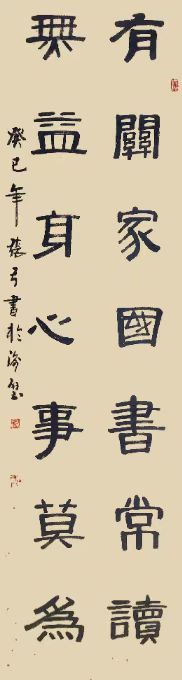 有關家國書常讀
無益身心事莫為
癸巳年張弓書於渝